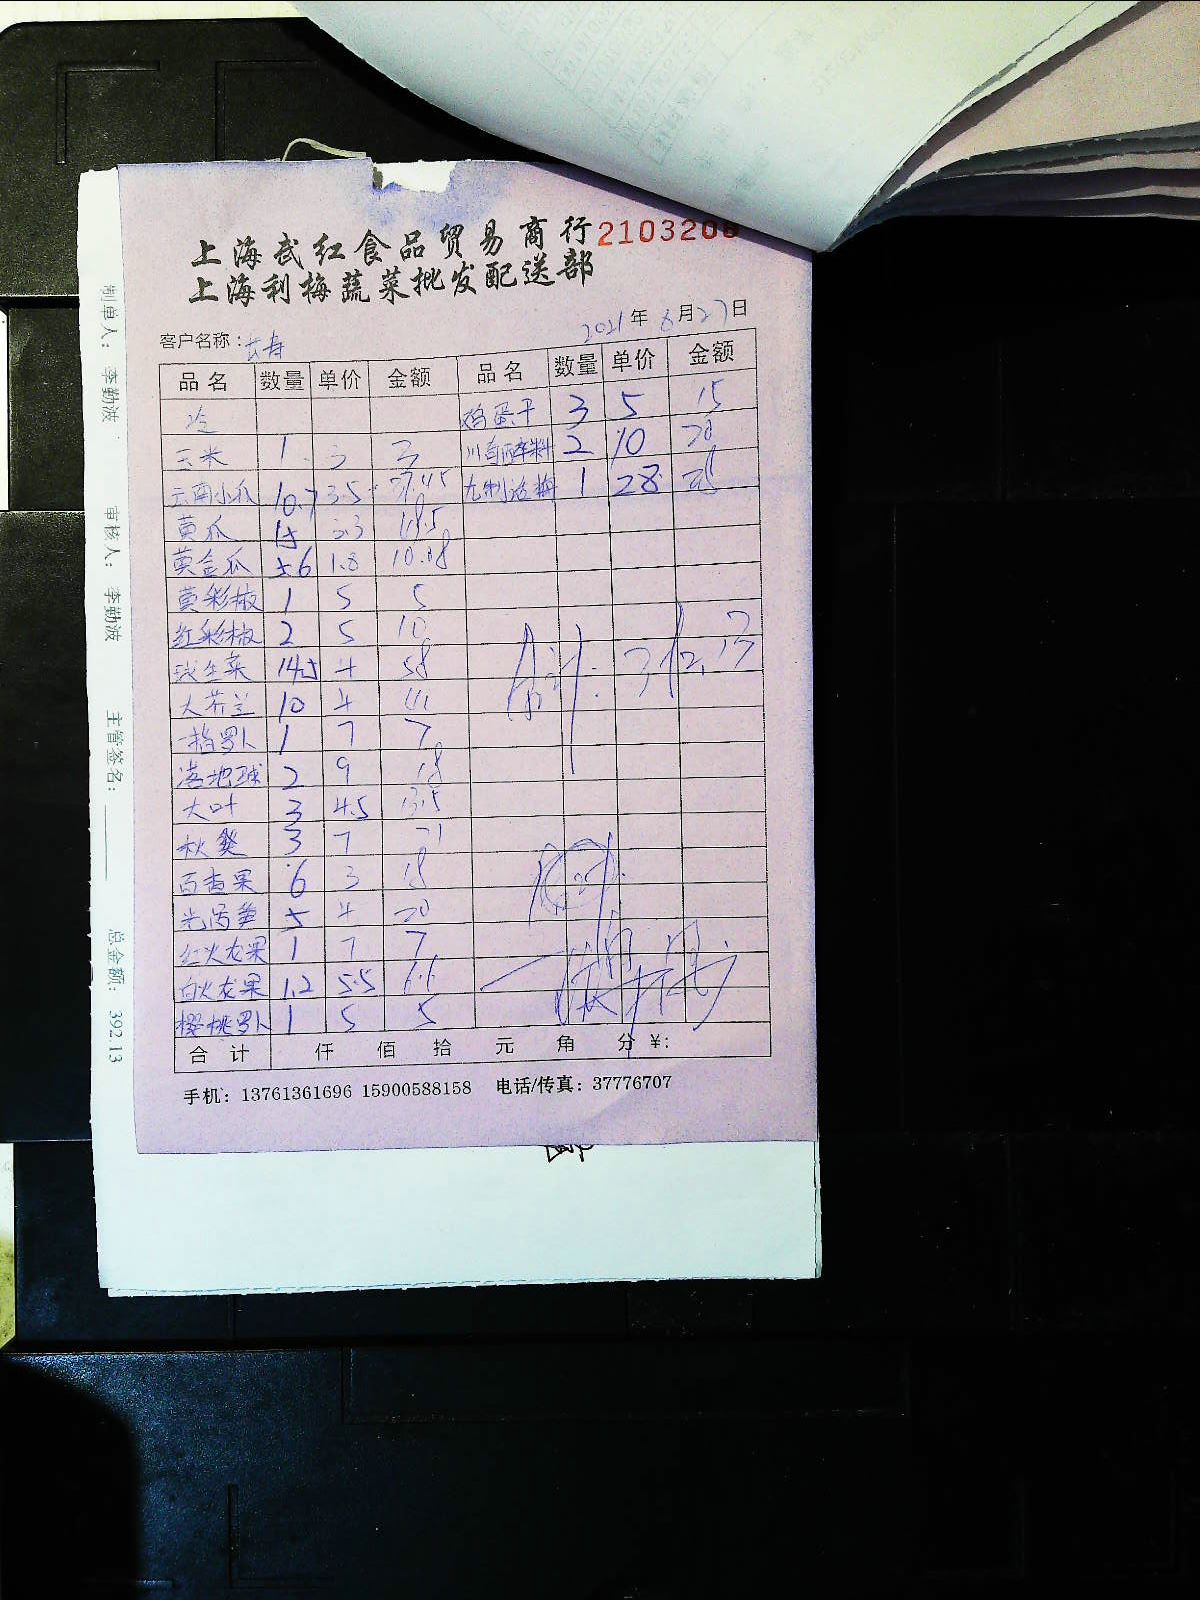 上海武红食品贸易商行
2103206
上海利梅蔬菜批发配送部
2021年6月27日
客户名称：长寿
品名 数量 单价 金额 品名 数量 单价 金额
冷 鸡蛋干 3 5 15
玉米 1 3 3 2 10 20
云南小瓜 10.7 3.5 37.45 九制话梅 1 28
黄瓜 15 3.3
黄金瓜 5.6 1.8 10.08
黄彩椒 1 5 5
红彩椒 2 5 10
球生菜 14.5 4 58
大芥兰 10 4
1 7 7
落地球 2 9 18
大叶 3 4.5 13.5
秋葵 3 7 21
百香果 6 3 18
光莴笋 5 4 20
红火龙果 1 7 7
白火龙果 1.2 5.5 6.6
樱桃罗卜 1 5 5
合计 仟 佰 拾 元 角 分 ¥:
手机：13761361696 15900588158 电话/传真：37776707
制单人：李勤波
审核人：李勤波
主管签名：
总金额：392.13